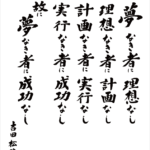 夢なき者に理想なし
理想なき者に計画なし
計画なき者に実行なし
実行なき者に成功なし
故に夢なき者に成功なし
吉田松